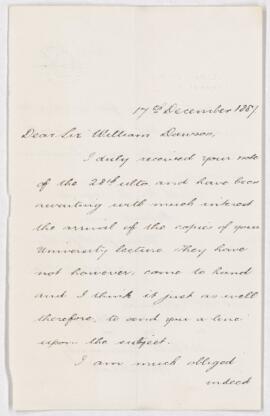 17th December 1887
Dear Sir William Dawson,
I duly received your note
of the 28th ulto. and have been
awaiting with much interest
the arrival of the copies of your
University lecture. They have
not however, come to hand
and I think it just as well
therefore, to send you a line
upon the subject.
I am much obliged
indeed